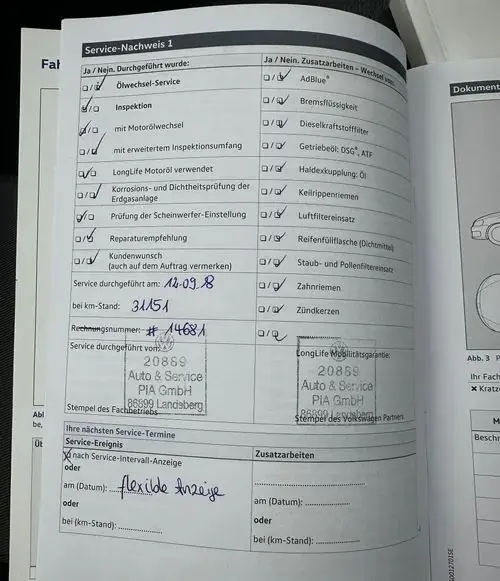 Fah
Service-Nachweis 1
Ja / Nein. Durchgeführt wurde:
Ölwechsel-Service
Inspektion
mit Motorölwechsel
mit erweitertem Inspektionsumfang
LongLife Motoröl verwendet
Korrosions- und Dichtheitsprüfung der
Erdgasanlage
Prüfung der Scheinwerfer-Einstellung
Reparaturempfehlung
Kundenwunsch
(auch auf dem Auftrag vermerken)
Service durchgeführt am: 12.09.18
bei km-Stand: 31151
Rechnungsnummer: # 14681
Service durchgeführt von:
20889
Auto & Service
PIA GmbH
86899 Landsberg
Stempel des Fachbetriebs
Ja / Nein. Zusatzarbeiten – Wechsel von:
AdBlue®
Bremsflüssigkeit
Dieselkraftstofffilter
Getriebeöl: DSG®, ATF
Haldexkupplung: Öl
Keilrippenriemen
Luftfiltereinsatz
Reifenfüllflasche (Dichtmittel)
Staub- und Pollenfiltereinsatz
Zahnriemen
Zündkerzen
LongLife Mobilitätsgarantie:
20889
Auto & Service
PIA GmbH
86899 Landsberg
Stempel des Volkswagen Partners
Ihre nächsten Service-Termine
Service-Ereignis
nach Service-Intervall-Anzeige
oder
am (Datum): flexible Anzeige
oder
bei (km-Stand):
Zusatzarbeiten
am (Datum):
oder
bei (km-Stand):
Abl
be,
Üb
Dokument
Abb. 3 P
Ihr Fach
Kratz
M
Beschr